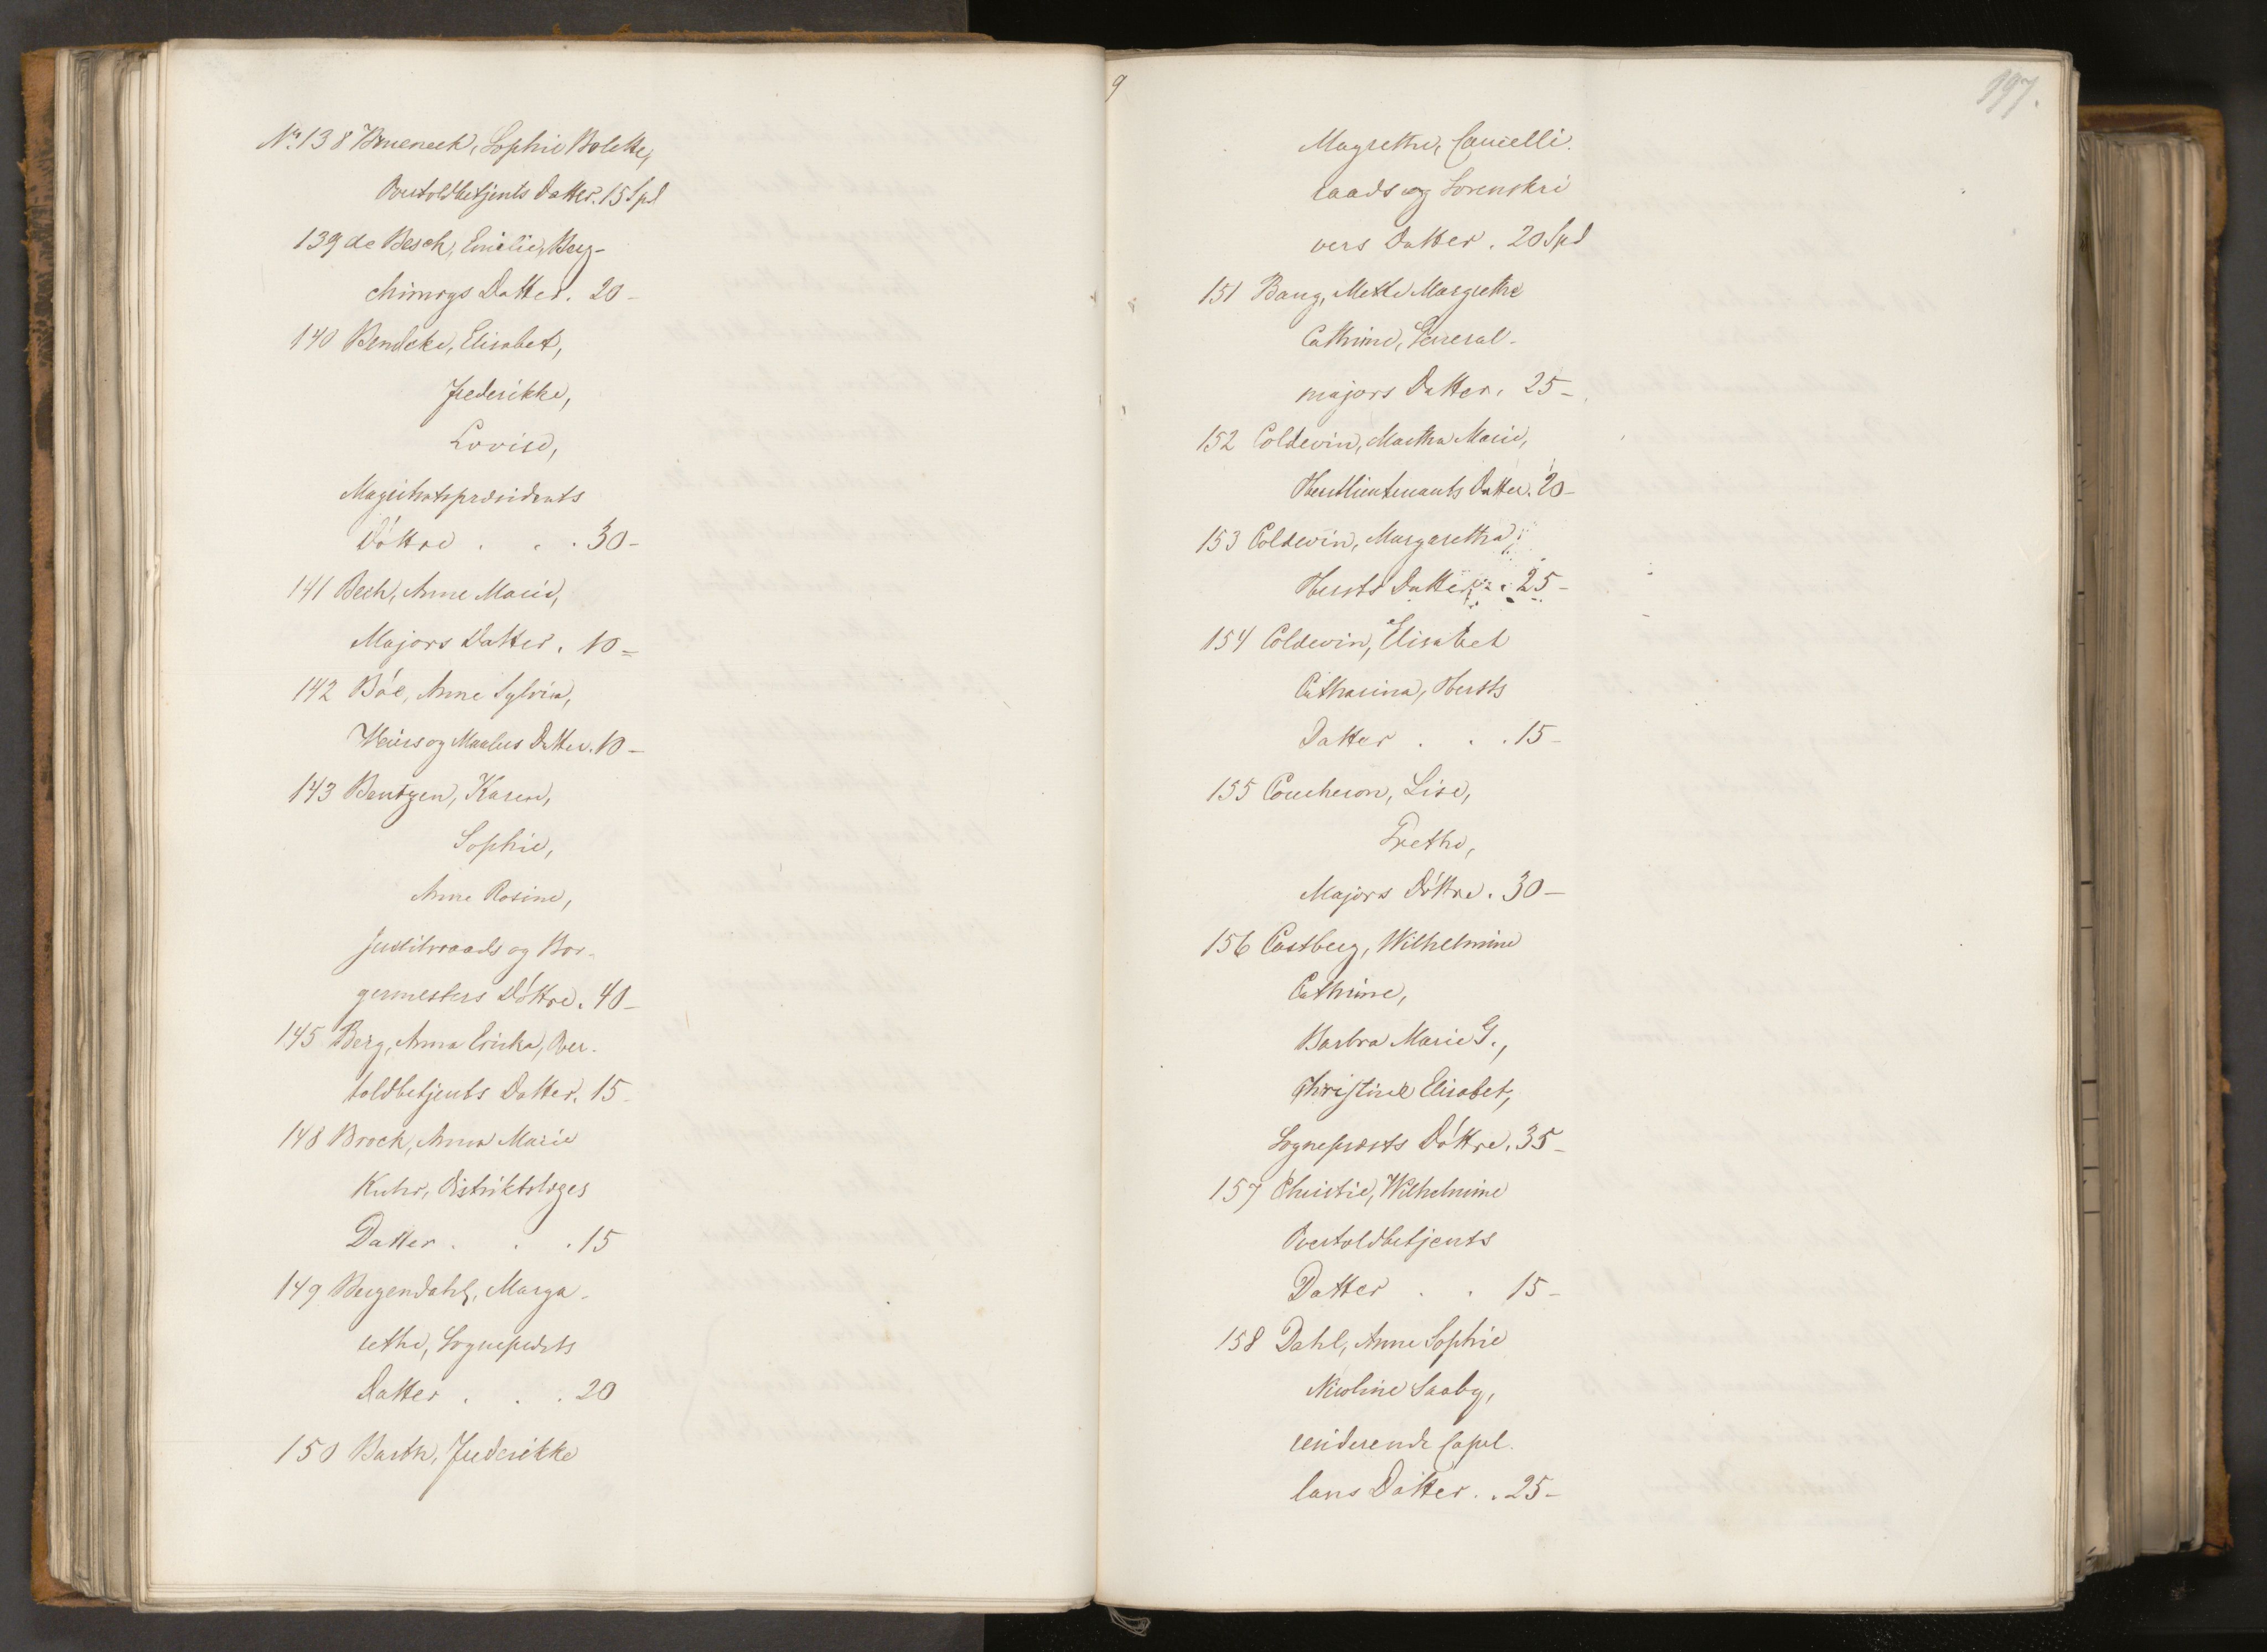 No. 138 Brueneck, Sophie Bolette,
Overtoldbetjents Datter. 15 Spd
139 de Besch, Emilie, Berg-
chirurgs Datter. 20 -
140 Bendeke, Elisabet,
Frederikke,
Lovise,
Magistratspræsidents
Döttre . . . 30 -
141 Bech, Anne Marie,
Majors Datter. 10 -
142 Böe, Anne Sylvia,
Veier og Maalers Datter. 10 -
143 Bentzen, Karen,
Sophie,
Anne Rosine,
Justitsraads og Bor-
germesters Döttre. 40 -
145 Berg, Anna Ericka, Over-
toldbetjents Datter. 15 -
148 Brock, Anna Marie
Kuhr, Distriktslæges
Datter . . . 15
149 Bergendahl, Marga-
rethe, Sognepræsts
Datter . . . 20
150 Barth, Frederikke
9
197.
Magrethe, Cancelli-
raads og Sorenskri
vers Datter. 20 Spd
151 Bang, Mette Margrethe
Cathrine, General-
majors Datter. 25 -
152 Coldevin, Martha Marie,
Oberstlieutenants Datter. 20 -
153 Coldevin, Margaretha,
Obersts Datter . 25 -
154 Coldevin, Elisabet
Catharina, Obersts
Datter . . . 15 -
155 Coucheron, Lise,
Grethe,
Majors Döttre. 30 -
156 Castberg, Wilhelmine
Cathrine,
Barbra Marie G.,
Christine Elisabet,
Sognepræsts Döttre. 35 -
157 Christie, Wilhelmine
Overtoldbetjents
Datter . . 15 -
158 Dahl, Anne Sophie
Nicoline Saaby,
residerende Capel-
lans Datter. . 25 -